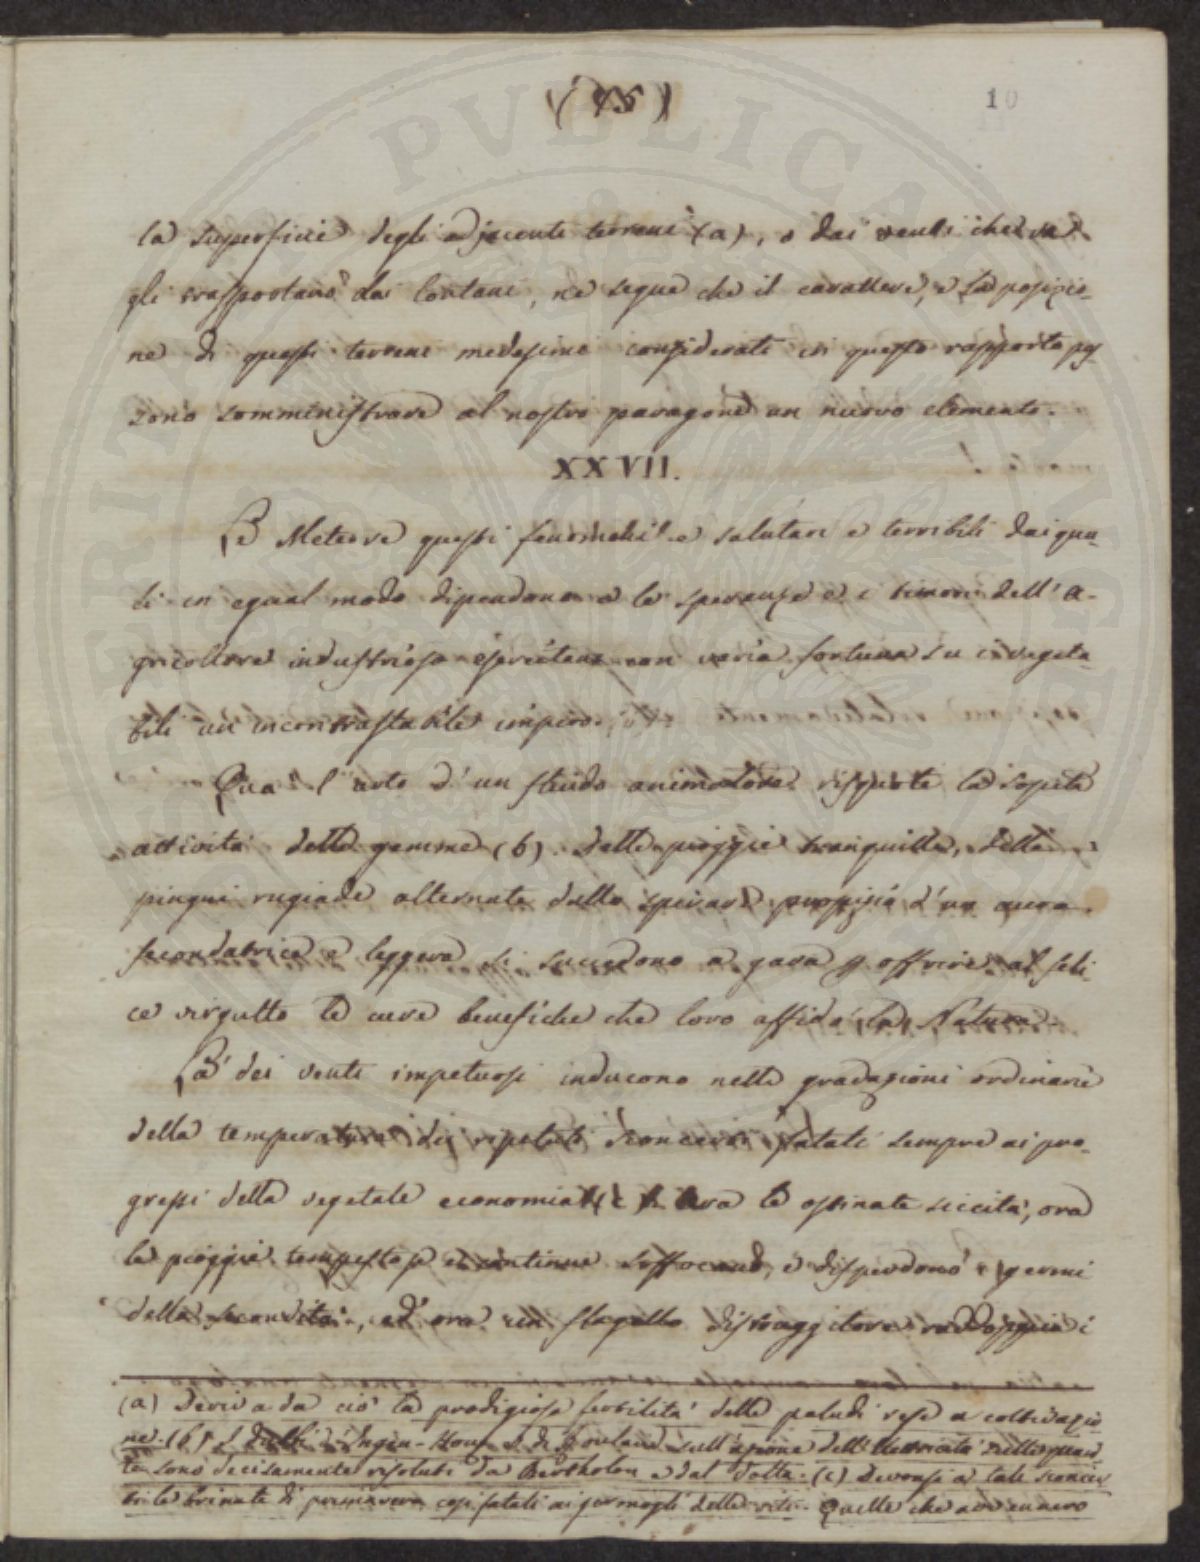 (15)
10
la superficie degli adjacenti terreni (a), o dai venti che ve
gli trasportano da lontani, ne segue che il carattere, e la posizio-
ne di questi terreni medesimi considerati in questo rapporto pos-
sono somministrare al nostro paragone un nuovo elemento.
XXVII.
Le Meteore questi fenomeni e salutari e terribili dai qua-
li in egual modo dipendono e le speranze e i timori dell' a-
gricoltore industrioso esercitano con varia fortuna su i vegeta-
bili un incontrastabile impero.
Qua l'urto d'un fluido animatore risquote la sopita
attività delle gemme (b). Delle pioggie tranquille, delle
pingui rugiade alternate dallo spirare propizio d'un aura
fecondatrice e leggera si succedono a gara p offrire al feli-
ce virgulto le cure benefiche che loro affidò la Natura.
Là dei venti impetuosi inducono nelle gradazioni ordinarie
della temperatura dei ripetuti sconcerti fatali sempre ai pro-
gressi della vegetale economia (c). Ora le ostinate siccità, ora
le pioggie tempestose e continue soffocano, e disperdono i germi
della fecondità, ed ora un flagello distruggitore raddoppia i
(a) Deriva da ciò la prodigiosa fertilità delle paludi rese a coltivazio
ne. (b) I dubbi d'Ingen-Housz sull'azione dell'elettricità nelle pian
te sono decisamente risoluti da Bertholon e dal Volta. (c) Devonsi a tale sconcer
to le brinate di primavera così fatali ai germogli delle viti. Quelle che avvennero